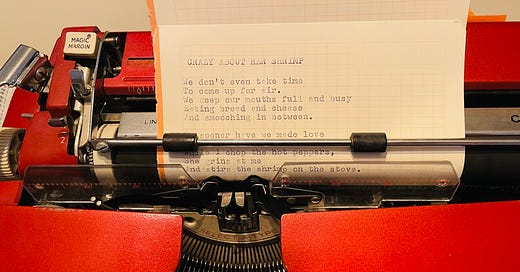 MAGIC
MARGIN
CRAZY ABOUT HER SHRIMP
We don't even take time
To come up for air.
We keep our mouths full and busy
Eating bread and cheese
And smooching in between.
sooner have we made love
I chop the hot peppers,
She grins at me
And stirs the shrimp on the stove.